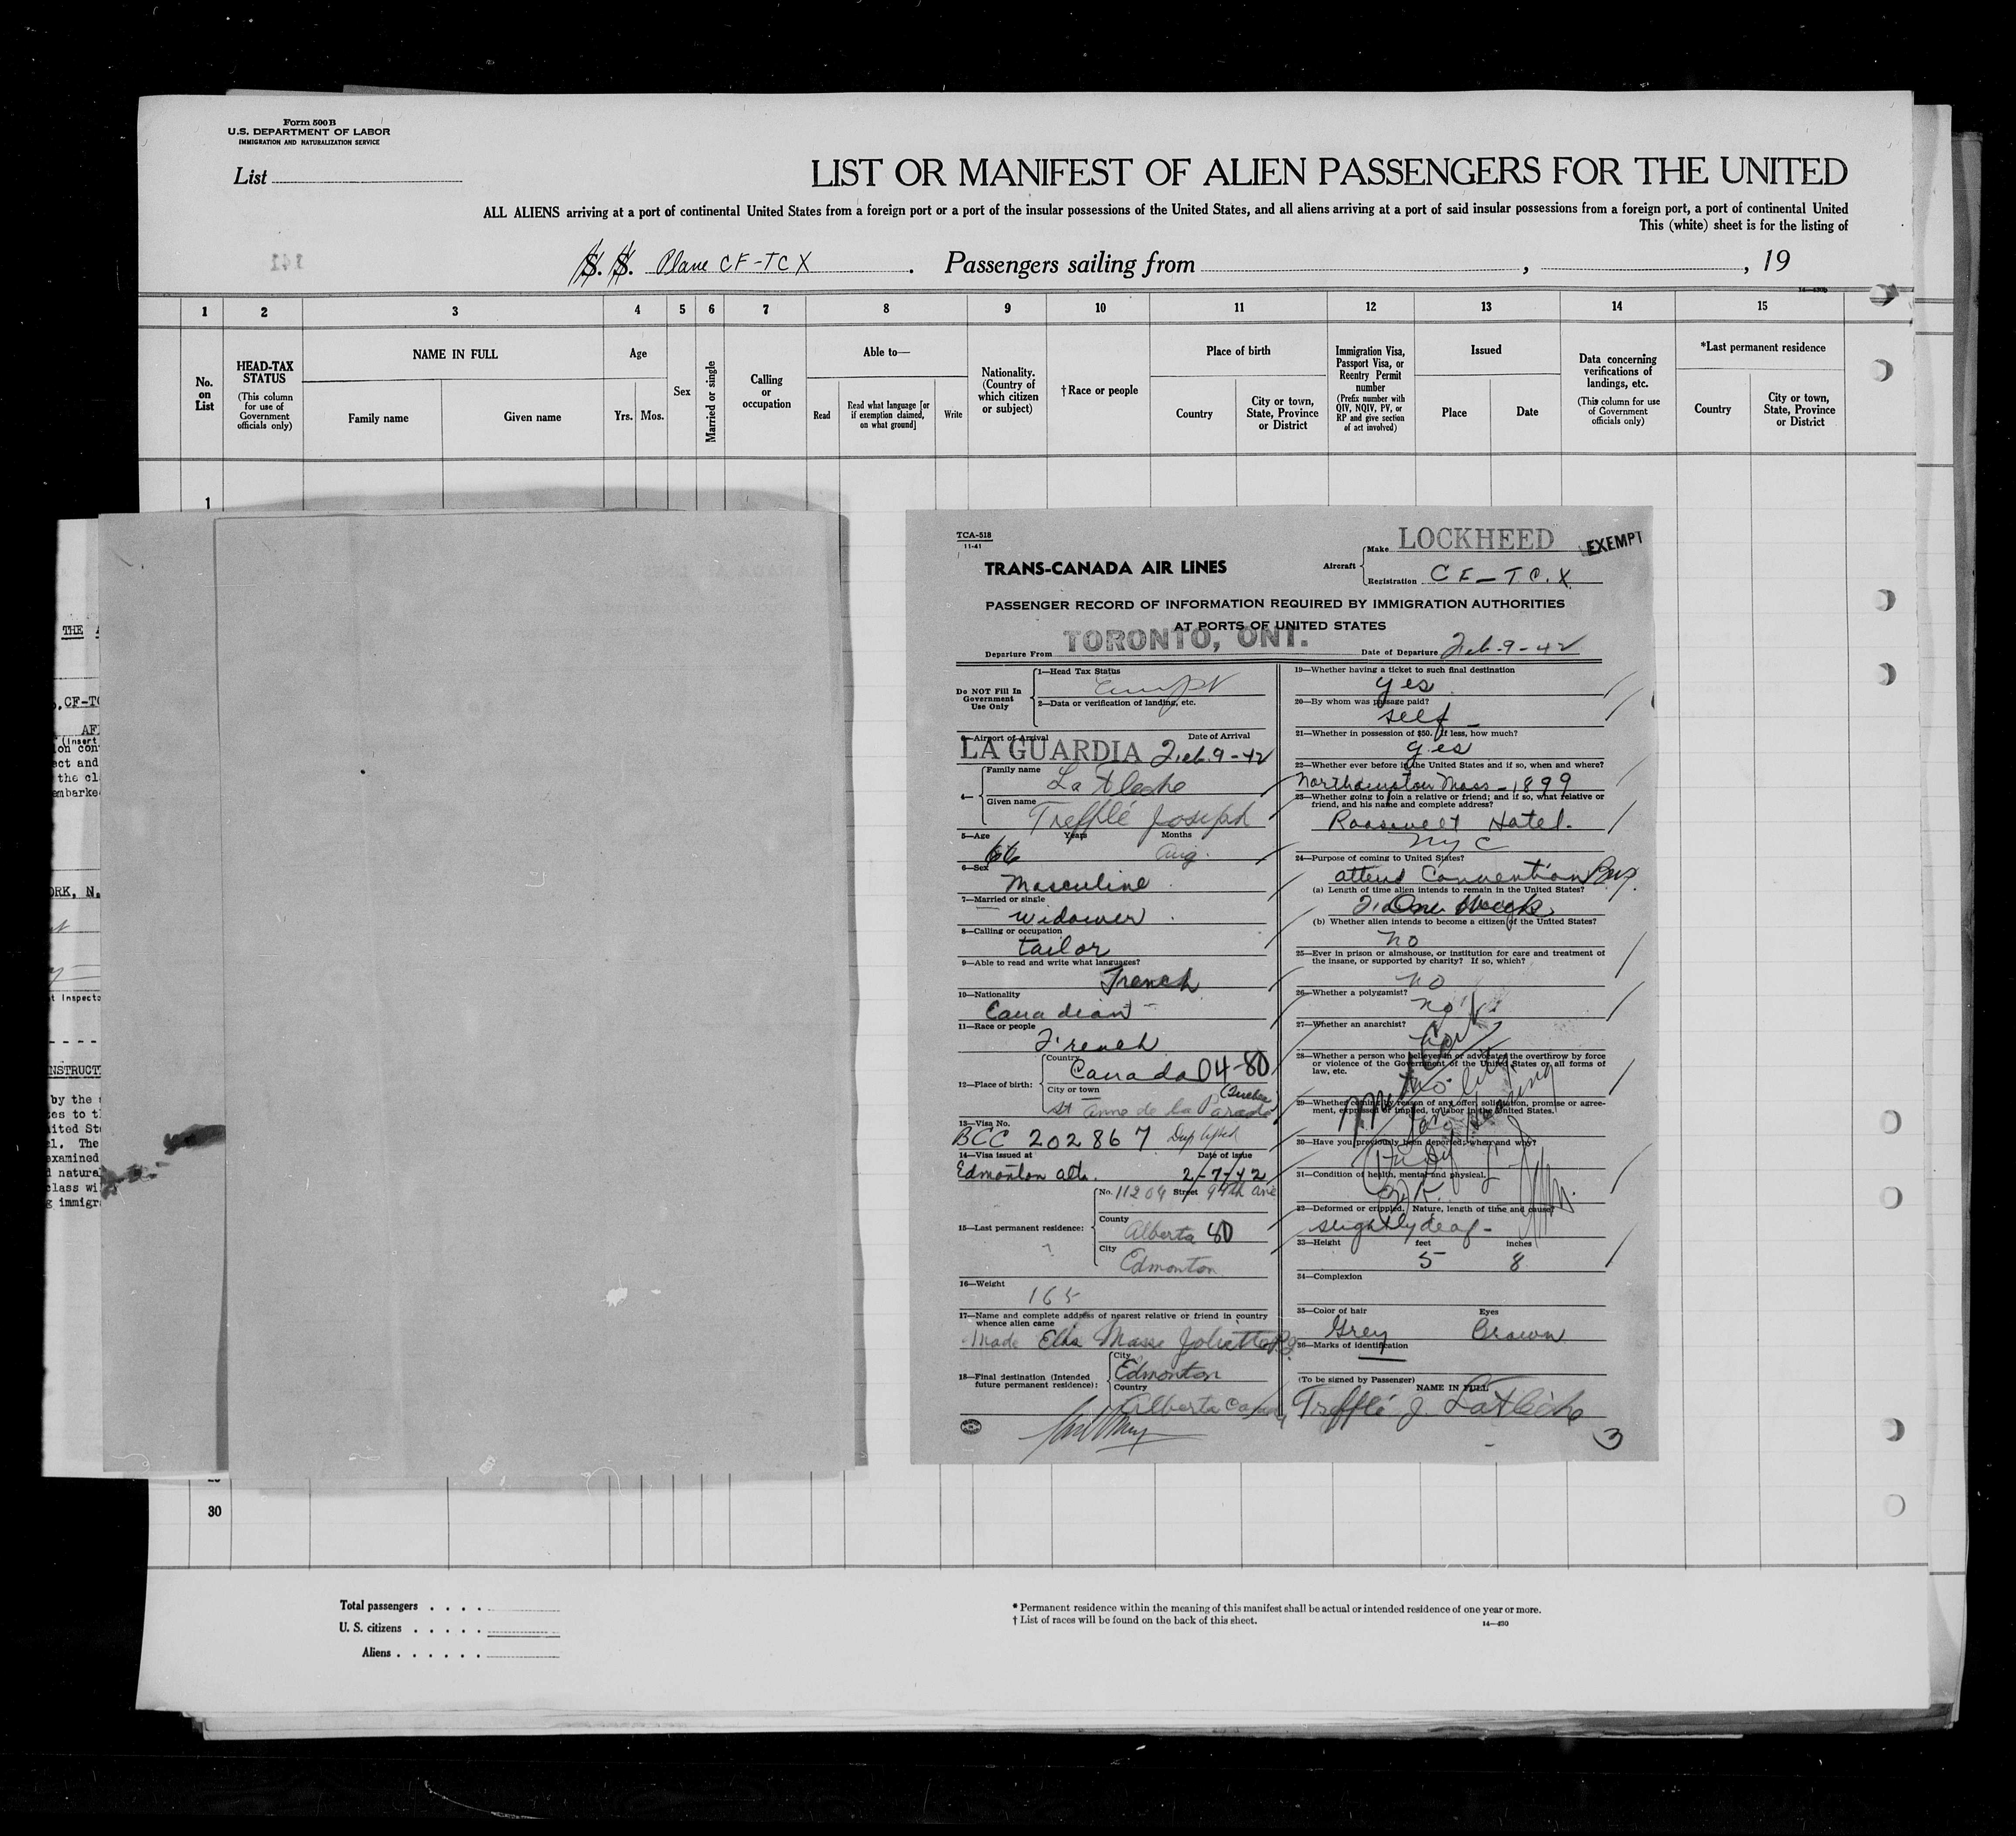 Form 500B
U.S. DEPARTMENT OF LABOR
IMMIGRATION AND NATURALIZATION SERVICE
List
LIST OR MANIFEST OF ALIEN PASSENGERS FOR THE UNITED
ALL ALIENS arriving at a port of continental United States from a foreign port or a port of the insular possessions of the United States, and all aliens arriving at a port of said insular possessions from a foreign port, a port of continental United
This (white) sheet is for the listing of
141
S. S. Plane CF-TCX . Passengers sailing from , , 19
1 2 3 4 5 6 7 8 9 10 11 12 13 14 15
No. on List
HEAD-TAX STATUS
(This column for use of Government officials only)
NAME IN FULL
Family name
Given name
Age
Yrs. Mos.
Sex
Married or single
Calling or occupation
Able to—
Read
Read what language [or if exemption claimed, on what ground]
Write
Nationality. (Country of which citizen or subject)
†Race or people
Place of birth
Country
City or town, State, Province or District
Immigration Visa, Passport Visa, or Reentry Permit number
(Prefix number with QIV, NQIV, PV, or RP and give section of act involved)
Issued
Place
Date
Data concerning verifications of landings, etc.
(This column for use of Government officials only)
*Last permanent residence
Country
City or town, State, Province or District
1
THE
CF-TC
AF
(Insert
ion con
ect and
the cl
embarke
ORK, N.
t Inspecto
NSTRUCT
by the
es to t
ited St
el. The
examined
natura
class wi
g immigr
TCA-518
11-41
TRANS-CANADA AIR LINES
Aircraft
Make LOCKHEED
EXEMPT
Registration CF-T.C.X
PASSENGER RECORD OF INFORMATION REQUIRED BY IMMIGRATION AUTHORITIES
AT PORTS OF UNITED STATES
Departure From TORONTO, ONT.
Date of Departure Feb-9-42
Do NOT Fill In Government Use Only
1—Head Tax Status
Exempt
2—Data or verification of landing, etc.
3—Airport of Arrival Date of Arrival
LA GUARDIA Feb.9-42
4— Family name
La Fleche
Given name
Trefflé Joseph
5—Age Years Months
66 Aug.
6—Sex
Masculine
7—Married or single
widower
8—Calling or occupation
tailor
9—Able to read and write what languages?
French
10—Nationality
Canadian
11—Race or people
French
12—Place of birth:
Country
Canada 04-80
City or town
(Quebec)
St Anne de la Parade
13—Visa No.
BCC 202867 Dup lifted
14—Visa issued at Date of issue
Edmonton alta. 2-7-42
15—Last permanent residence:
No. 11204 Street 97th ave
County
Alberta 80
City
Edmonton
16—Weight
165
17—Name and complete address of nearest relative or friend in country
whence alien came
Made Masse Joliette P.Q.
18—Final destination (Intended future permanent residence):
City
Edmonton
Country
Alberta Canada
19—Whether having a ticket to such final destination
yes
20—By whom was passage paid?
self
21—Whether in possession of $50. If less, how much?
yes
22—Whether ever before in the United States and if so, when and where?
Northampton Mass - 1899
23—Whether going to join a relative or friend; and if so, what relative or
friend, and his name and complete address?
Roosevelt Hotel.
NYC
24—Purpose of coming to United States?
attend Convention Bus.
(a) Length of time alien intends to remain in the United States?
One Week
(b) Whether alien intends to become a citizen of the United States?
no
25—Ever in prison or almshouse, or institution for care and treatment of
the insane, or supported by charity? If so, which?
no
26—Whether a polygamist?
no
27—Whether an anarchist?
28—Whether a person who believes in or advocates the overthrow by force
or violence of the Government of the United States or all forms of
law, etc.
no
29—Whether coming by reason of any offer, solicitation, promise or agree-
ment, expressed or implied, to labor in the United States.
30—Have you previously been deported; when and why?
31—Condition of health, mental and physical.
O.K.
32—Deformed or crippled. Nature, length of time and cause?
slightly deaf-
33—Height feet inches
5 8
34—Complexion
35—Color of hair Eyes
Grey Brown
36—Marks of identification
(To be signed by Passenger)
NAME IN FULL
Trefflé J. LaFlèche
3
30
Total passengers . . . .
U. S. citizens . . . . .
Aliens . . . . . .
* Permanent residence within the meaning of this manifest shall be actual or intended residence of one year or more.
† List of races will be found on the back of this sheet.
14—430